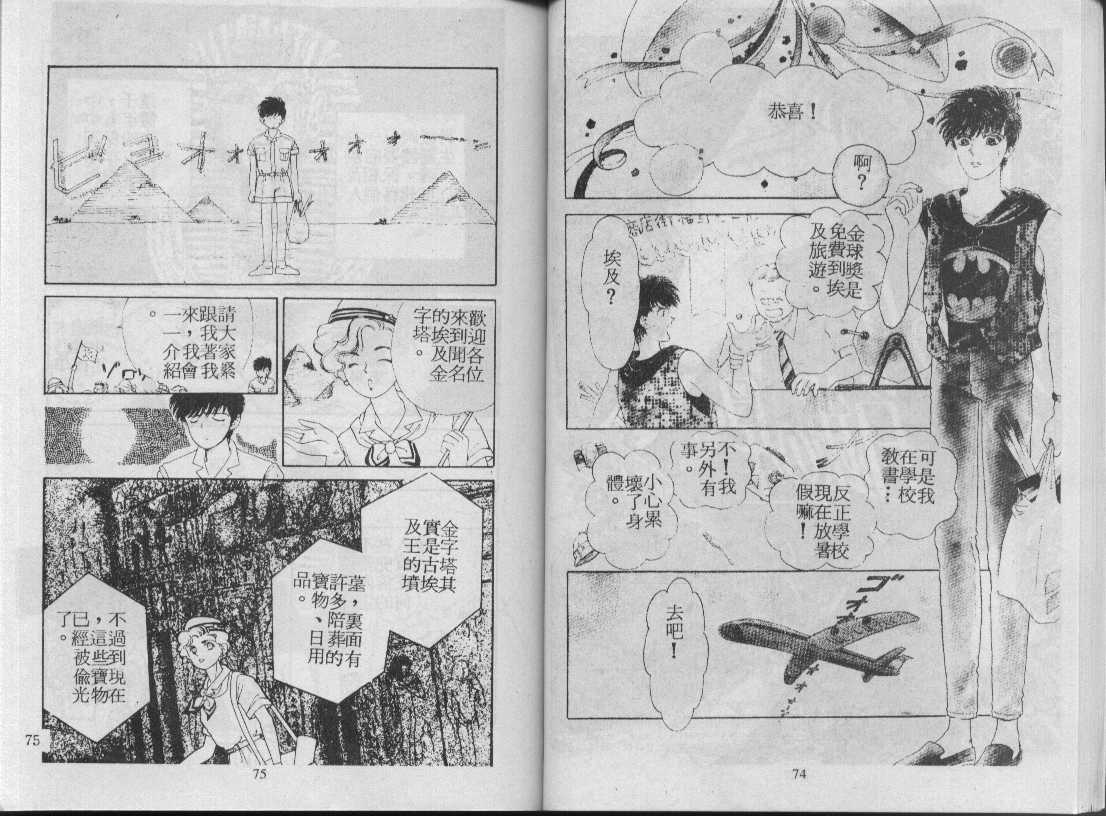 恭喜！
啊？
金球獎是
免費到埃
及旅遊。
埃及？
可是我
在學校
教書…
反正學校
現在放暑
假嘛！
不！我
另外有
事。
小心累
壞了身
體。
ゴオオオ
去吧！
74
ビュオオオオオオ
歡迎各位
來到聞名
的埃及金
字塔。
請大家緊
跟著我
來，我會
一一介紹
。
ゾロゾロ
金字塔其
實是古埃
及王的墳
墓，裏面有
許多陪葬的
寶物、日用
品。
不過到現在
，這些寶物
已經被偷光
了。
75
75